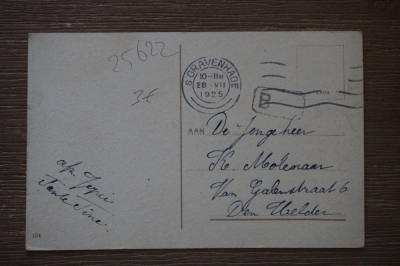 25622
3€
'S GRAVENHAGE
10-11N
28 · VII
1925
AAN
De Jongeheer
K. Molenaar
Van Galenstraat 6
Den Helder
Tante Tine.